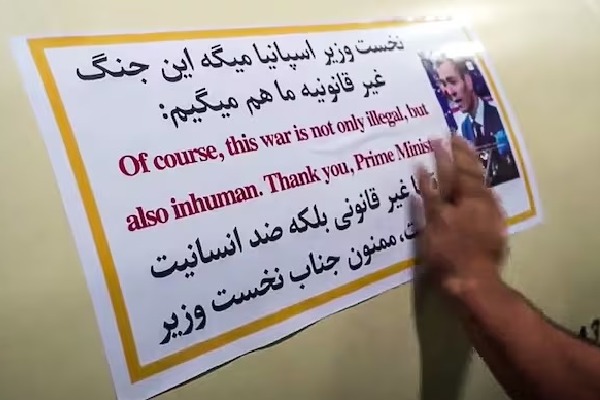 نخست وزیر اسپانیا میگه این جنگ
غیر قانونیه ما هم میگیم:
Of course, this war is not only illegal, but
also inhuman. Thank you, Prime Minist
غیر قانونی بلکه ضد انسانیت
ممنون جناب نخست وزیر